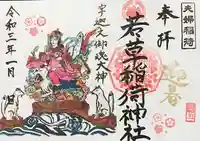 夫婦稲荷
奉拝
迎春
若草稲荷神社
宇迦之御魂大神
令和三年一月